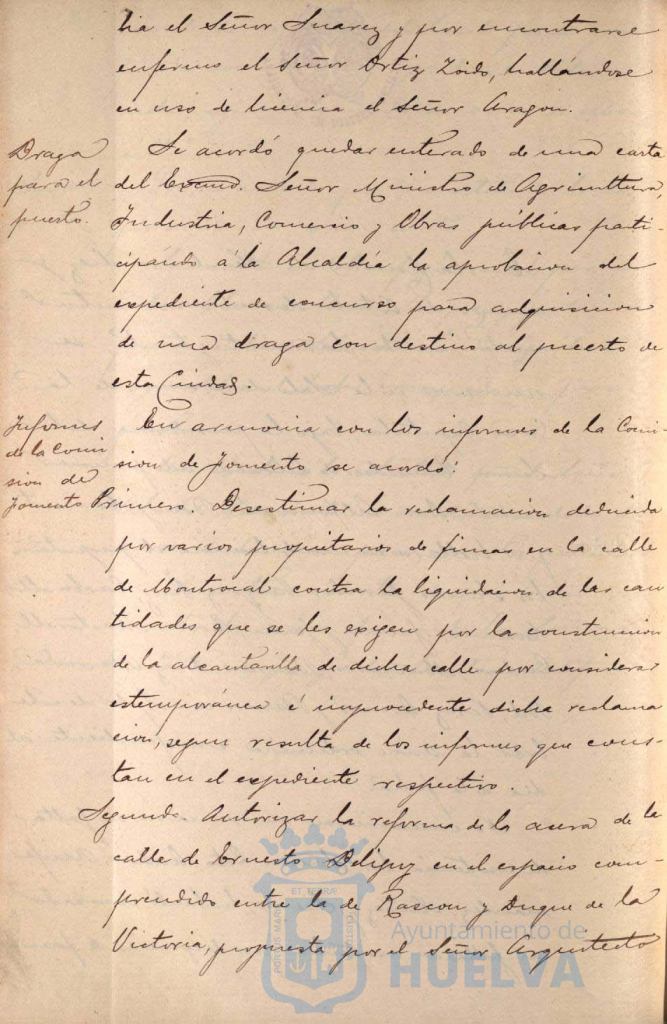 lia el Señor Suarez y por encontrarse
enfermo el Señor Ortiz Zoido, hallándose
en uso de licencia el Señor Aragon.
Draga
para el
puerto.
Se acordó quedar enterado de una carta
del Excmo. Señor Ministro de Agricultura,
Industria, Comercio y Obras públicas parti-
cipando á la Alcaldía la aprobacion del
expediente de concurso para adquisicion
de una draga con destino al puerto de
esta Ciudad.
Informes
de la Comi
sion de
Fomento
En armonia con los informes de la Comi-
sion de Fomento se acordó:
Primero. Desestimar la reclamacion deducida
por varios propietarios de fincas en la calle
de Montrocal contra la liquidacion de las can
tidades que se les exigen por la construccion
de la alcantarilla de dicha calle por considerar
estemporánea é improcedente dicha reclama
cion, segun resulta de los informes que cons-
tan en el expediente respectivo.
Segundo. Autorizar la reforma de la acera de la
calle de Ernesto Deligny en el espacio com-
prendido entre la de Rascon y Duque de la
Victoria, propuesta por el Señor Arquitecto
Ayuntamiento de
HUELVA